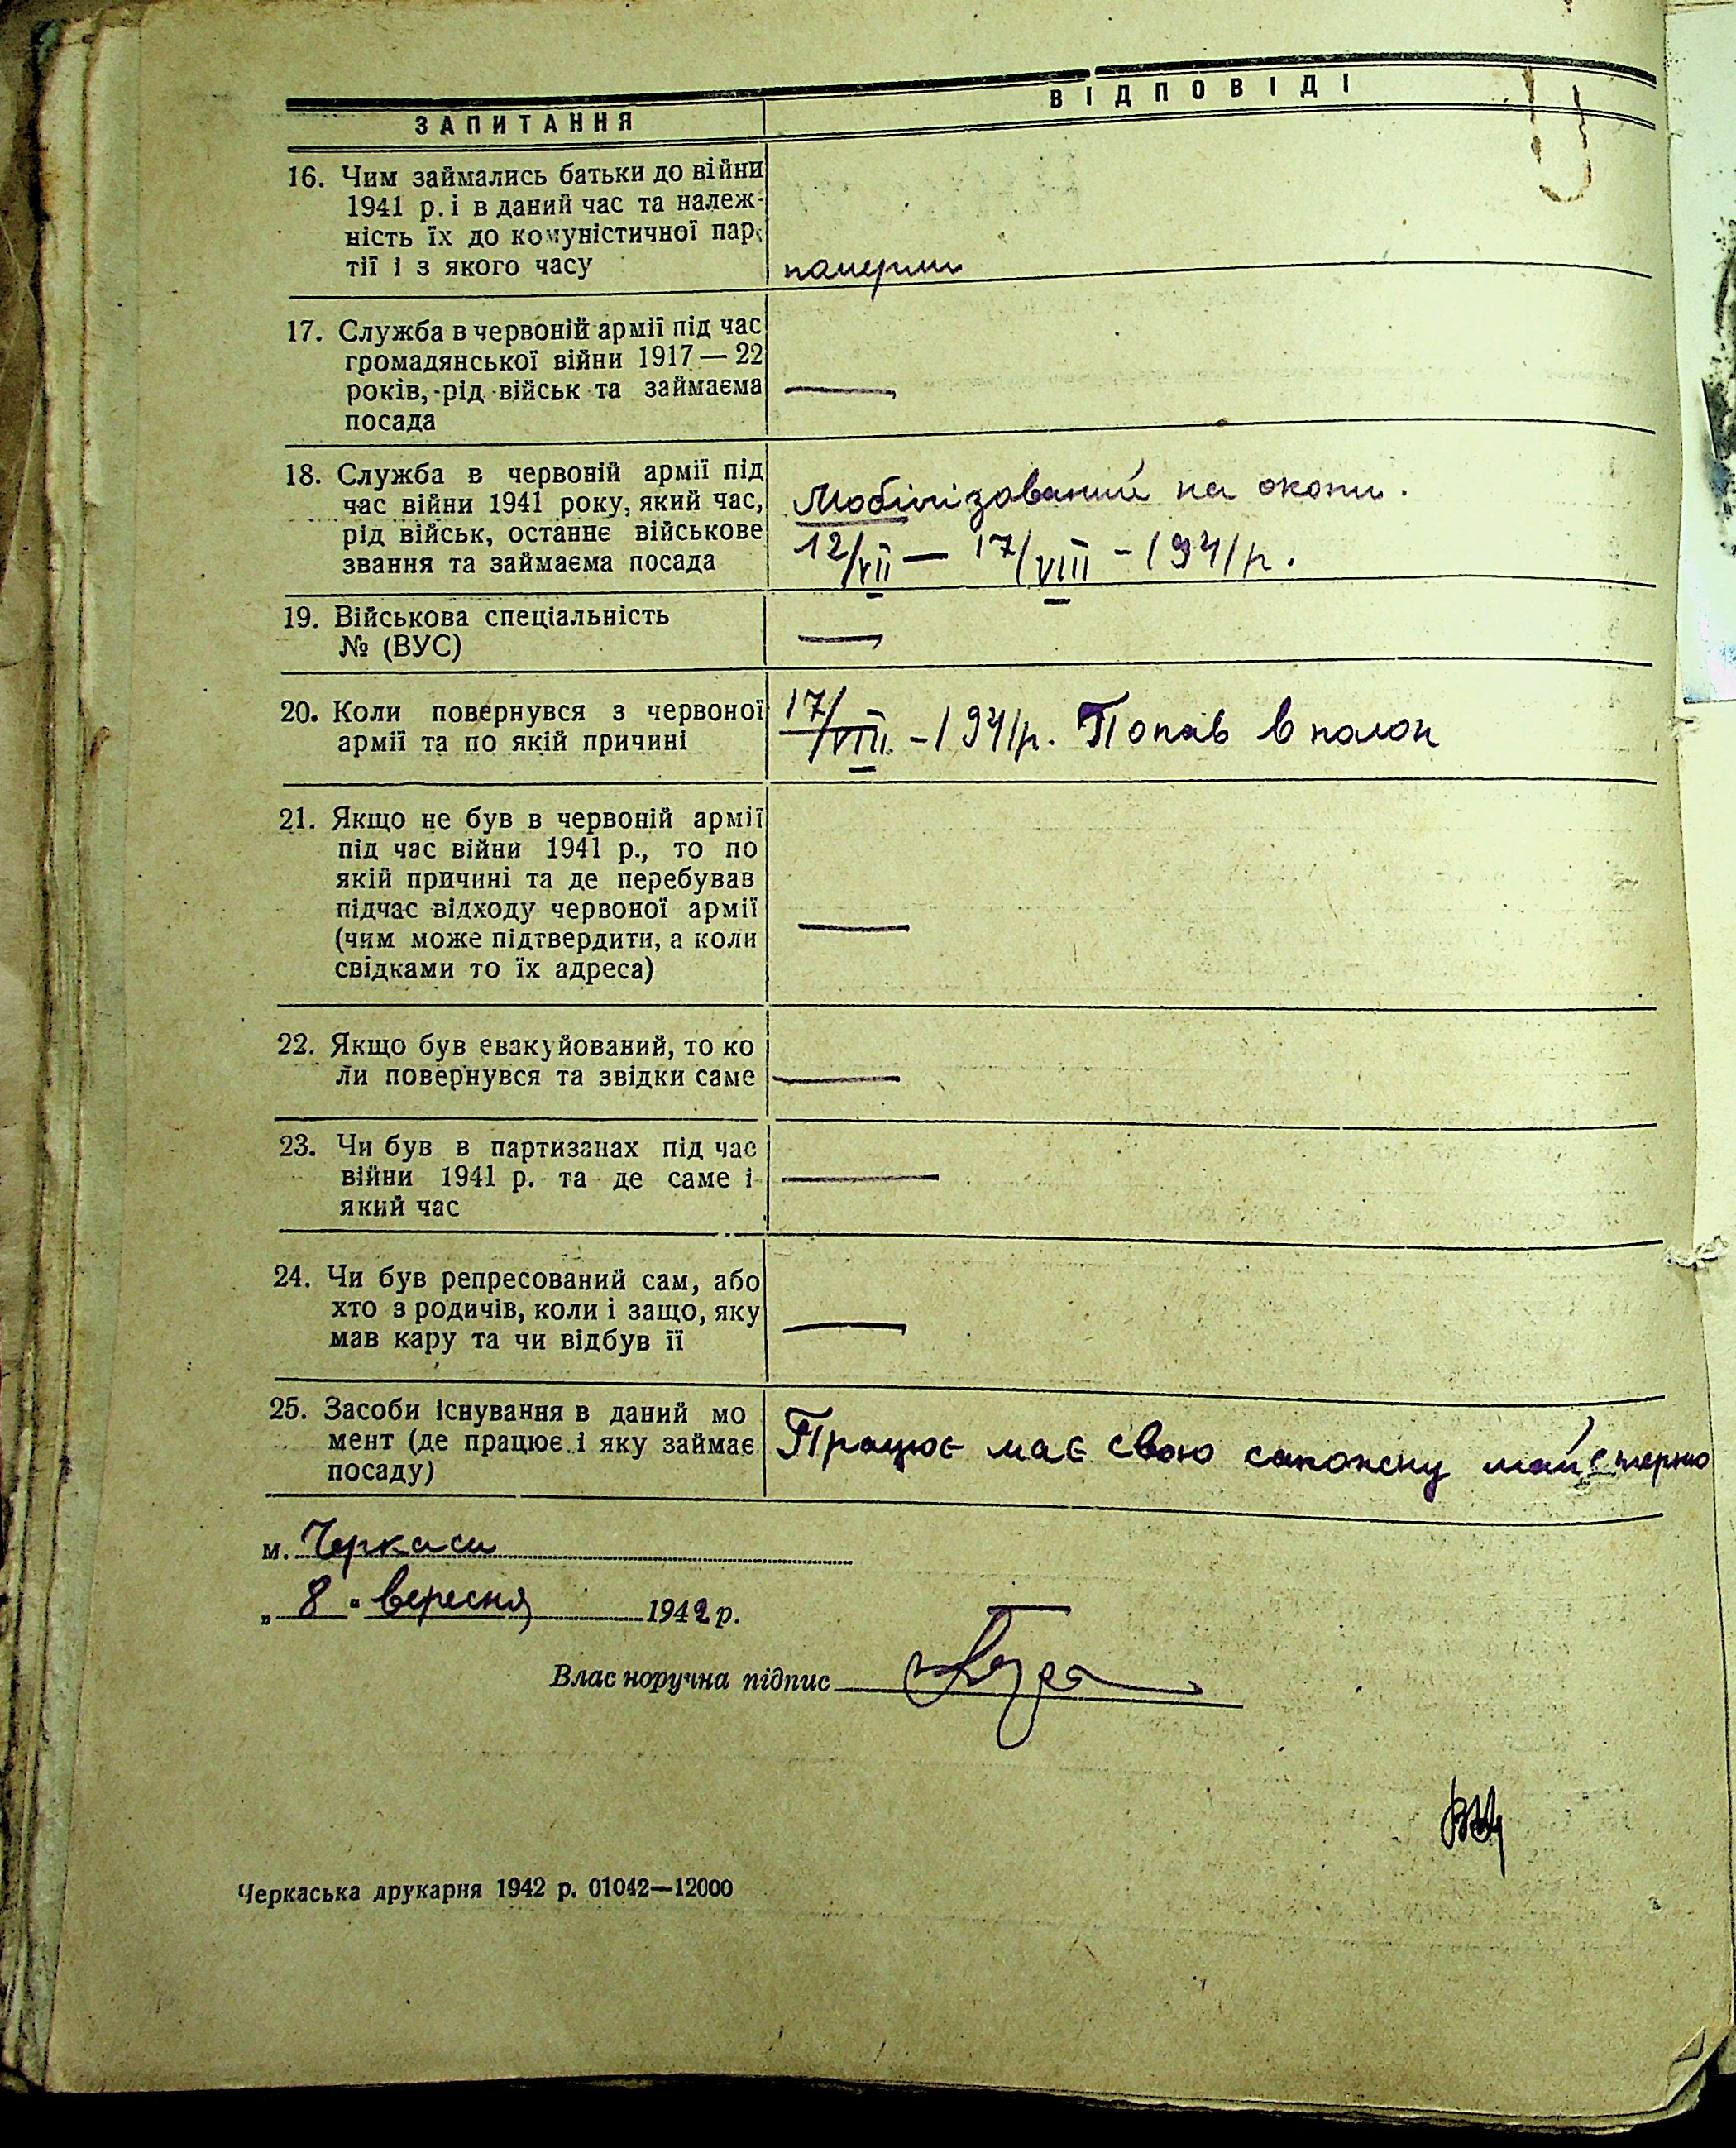 ЗАПИТАННЯ
ВІДПОВІДІ
16. Чим займались батьки до війни
1941 р. і в даний час та належ-
ність їх до комуністичної пар-
тії і з якого часу
померли
17. Служба в червоній армії під час
громадянської війни 1917 — 22
років, рід військ та займаєма
посада
—
18. Служба в червоній армії під
час війни 1941 року, який час,
рід військ, останнє військове
звання та займаєма посада
Мобілізований на окопи.
12/VII — 17/VIII - 1941 р.
19. Військова спеціальність
№ (ВУС)
—
20. Коли повернувся з червоної
армії та по якій причині
17/VIII - 1941 р. Попав в полон
21. Якщо не був в червоній армії
під час війни 1941 р., то по
якій причині та де перебував
підчас відходу червоної армії
(чим може підтвердити, а коли
свідками то їх адреса)
—
22. Якщо був евакуйований, то ко
ли повернувся та звідки саме
—
23. Чи був в партизанах під час
війни 1941 р. та де саме і
який час
—
24. Чи був репресований сам, або
хто з родичів, коли і защо, яку
мав кару та чи відбув її
—
25. Засоби існування в даний мо
мент (де працює і яку займає
посаду)
Працює має свою сапожну майстерню
м. Черкаси
„ 8 " вересня 1942 р.
Власноручна підпис
Черкаська друкарня 1942 р. 01042—12000